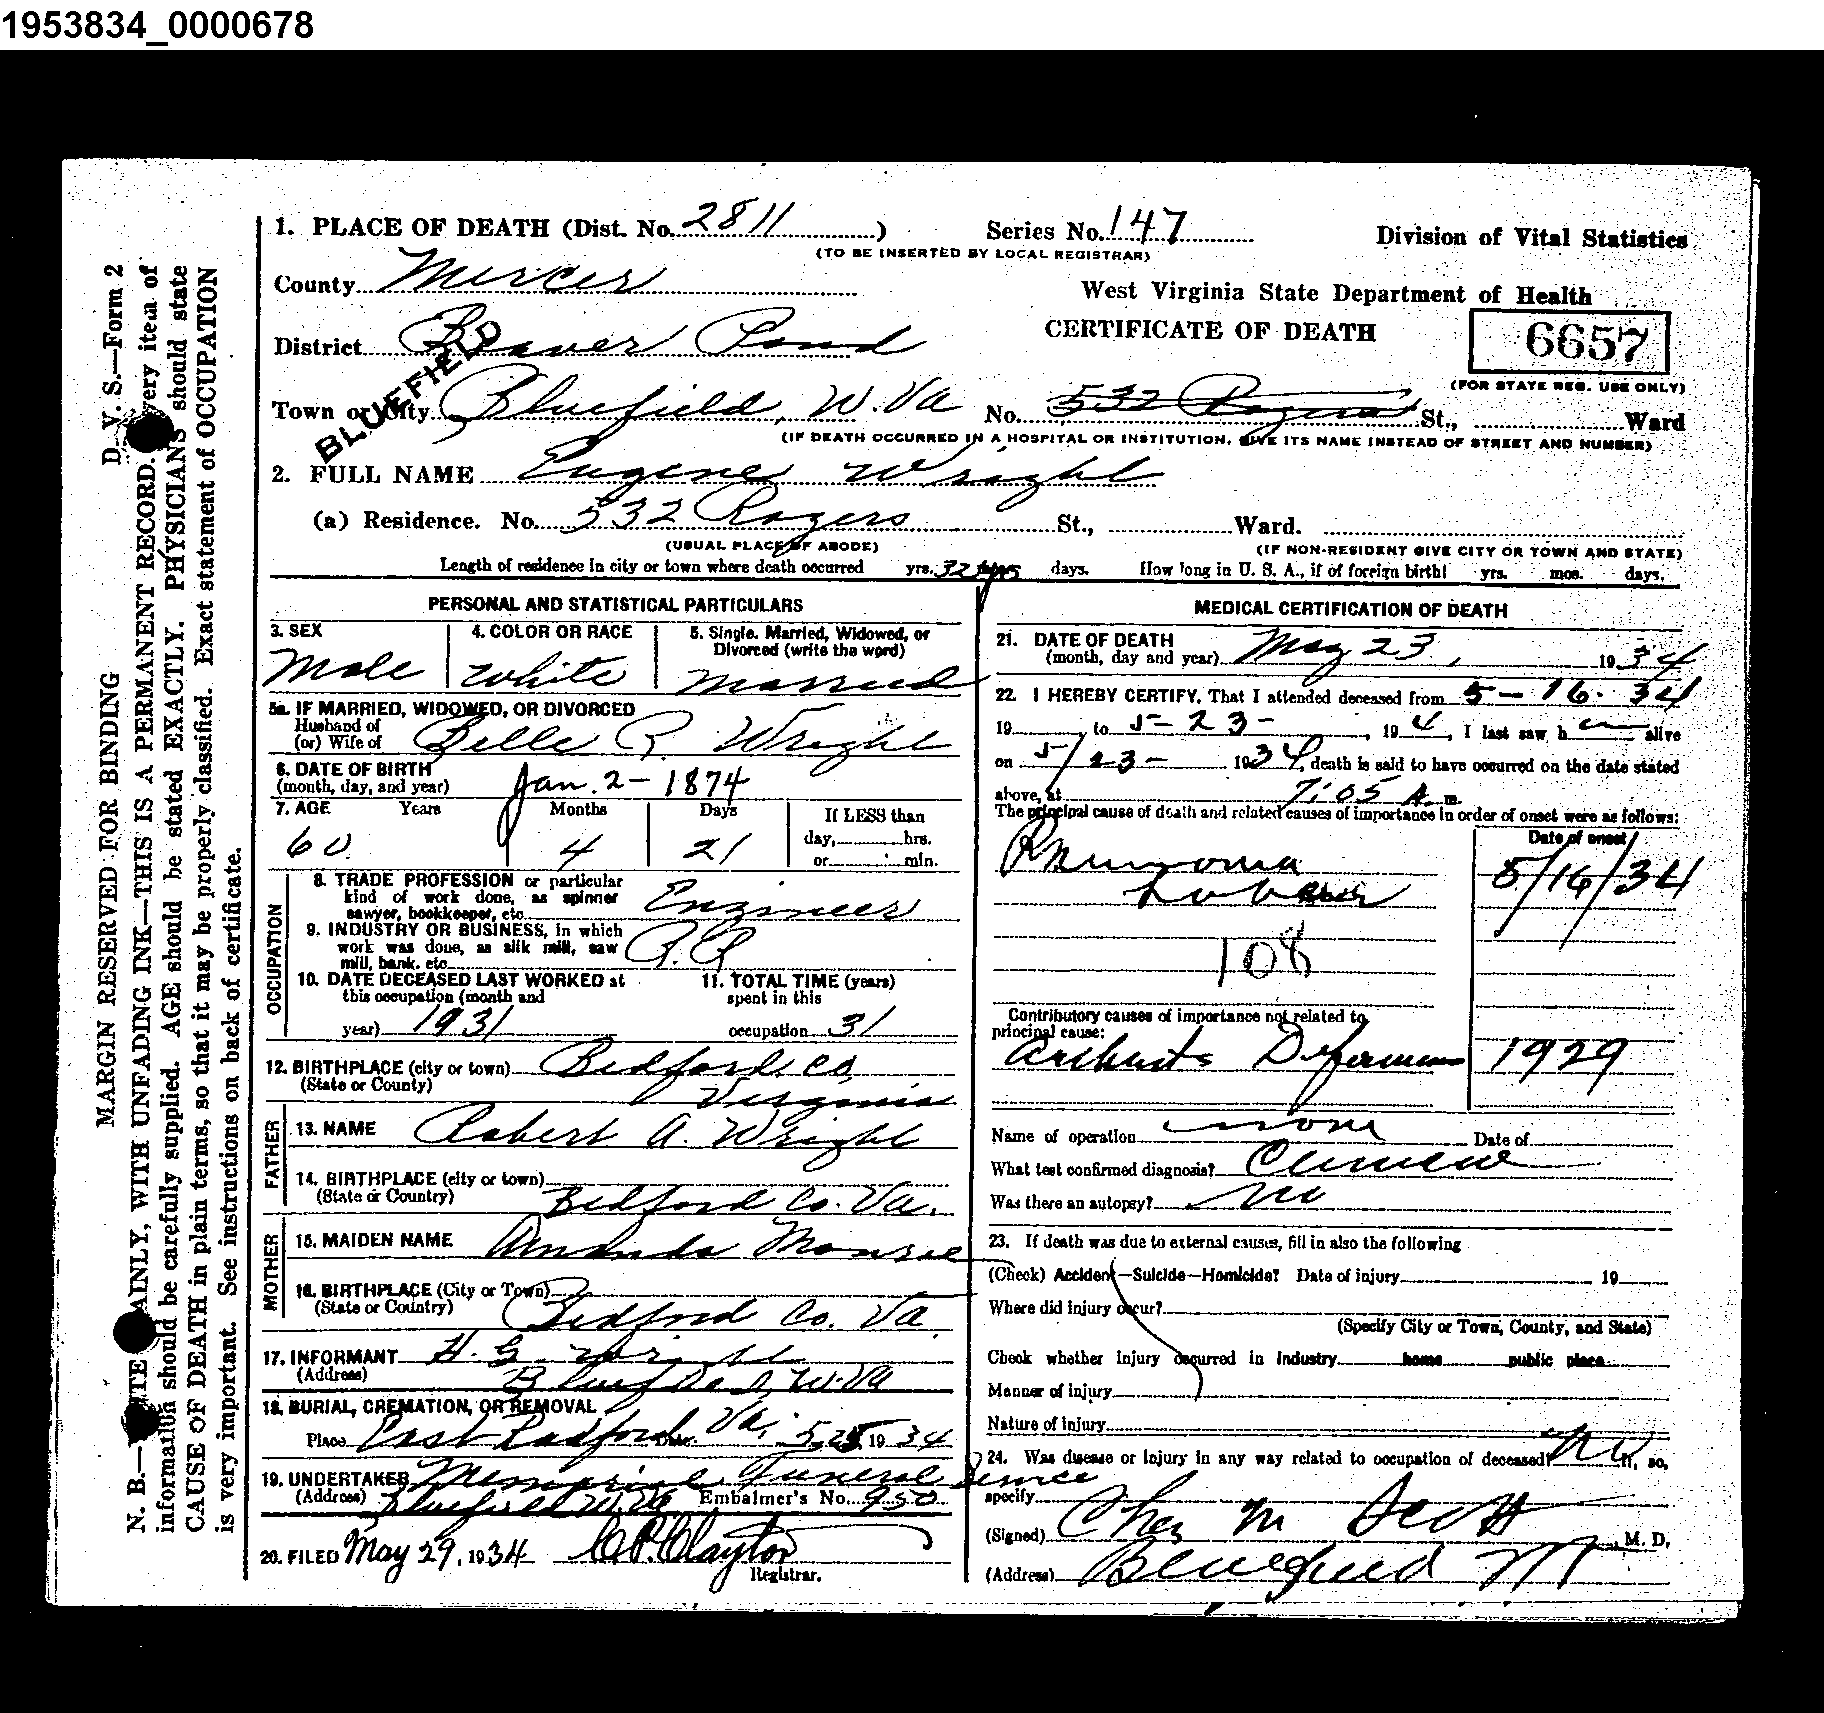 1953834_0000678
1. PLACE OF DEATH (Dist. No. 2811 ) Series No. 147 Division of Vital Statistics
(TO BE INSERTED BY LOCAL REGISTRAR)
County Mercer
West Virginia State Department of Health
District Beaver Pond
CERTIFICATE OF DEATH
6657
(FOR STATE REG. USE ONLY)
BLUEFIELD
Town or City Bluefield, W. Va No. 532 Rogers St., Ward
(IF DEATH OCCURRED IN A HOSPITAL OR INSTITUTION, GIVE ITS NAME INSTEAD OF STREET AND NUMBER)
2. FULL NAME Eugene Wright
(a) Residence. No. 532 Rogers St., Ward.
(USUAL PLACE OF ABODE) (IF NON-RESIDENT GIVE CITY OR TOWN AND STATE)
Length of residence in city or town where death occurred yrs. 32 yrs days. How long in U. S. A., if of foreign birth! yrs. mos. days.
PERSONAL AND STATISTICAL PARTICULARS
3. SEX 4. COLOR OR RACE 5. Single, Married, Widowed, or
Divorced (write the word)
Male White Married
5a. IF MARRIED, WIDOWED, OR DIVORCED
Husband of
(or) Wife of Belle R. Wright
6. DATE OF BIRTH
(month, day, and year) Jan. 2 - 1874
7. AGE Years Months Days If LESS than
day, hrs.
60 4 21
or min.
OCCUPATION
8. TRADE PROFESSION or particular
kind of work done, as spinner
sawyer, bookkeeper, etc. Engineer
9. INDUSTRY OR BUSINESS, in which
work was done, as silk mill, saw
mill, bank, etc. R.R
10. DATE DECEASED LAST WORKED at
this occupation (month and
year) 1931
11. TOTAL TIME (years)
spent in this
occupation 31
12. BIRTHPLACE (city or town) Bedford Co
(State or County) Virginia
FATHER
13. NAME Robert A. Wright
14. BIRTHPLACE (city or town)
(State or Country) Bedford Co. Va.
MOTHER
15. MAIDEN NAME Amanda Monroe
16. BIRTHPLACE (City or Town)
(State or Country) Bedford Co. Va
17. INFORMANT H. G. Wright
(Address) Bluefield, W. Va
18. BURIAL, CREMATION, OR REMOVAL
Place East Radford Va. Date 5-25 1934
19. UNDERTAKER Memorial Funeral Service
(Address) Bluefield W. Va Embalmer's No. 950
20. FILED May 29, 1934 C.P. Clayton
Registrar.
MEDICAL CERTIFICATION OF DEATH
21. DATE OF DEATH
(month, day and year) May 23, 1934
22. I HEREBY CERTIFY, That I attended deceased from 5-16-34
19 to 5-23- , 194, I last saw h alive
on 5/23- 1934, death is said to have occurred on the date stated
above, at 7:05 A. m.
The principal cause of death and related causes of importance in order of onset were as follows:
Date of onset
Pneumonia 5/16/34
Lobar
108
Contributory causes of importance not related to
principal cause:
Arthritis Deformans 1929
Name of operation none Date of
What test confirmed diagnosis? Clinical
Was there an autopsy? No
23. If death was due to external causes, fill in also the following
(Check) Accident—Suicide—Homicide? Date of injury 19
Where did injury occur?
(Specify City or Town, County, and State)
Check whether injury occurred in industry home public place
Manner of injury
Nature of injury
24. Was disease or injury in any way related to occupation of deceased? No If, so,
specify
(Signed) Chas M Scott , M. D.
(Address) Bluefield W
D. V. S.—Form 2
MARGIN RESERVED FOR BINDING
N. B.—WRITE PLAINLY, WITH UNFADING INK—THIS IS A PERMANENT RECORD. Every item of
information should be carefully supplied. AGE should be stated EXACTLY. PHYSICIANS should state
CAUSE OF DEATH in plain terms, so that it may be properly classified. Exact statement of OCCUPATION
is very important. See instructions on back of certificate.